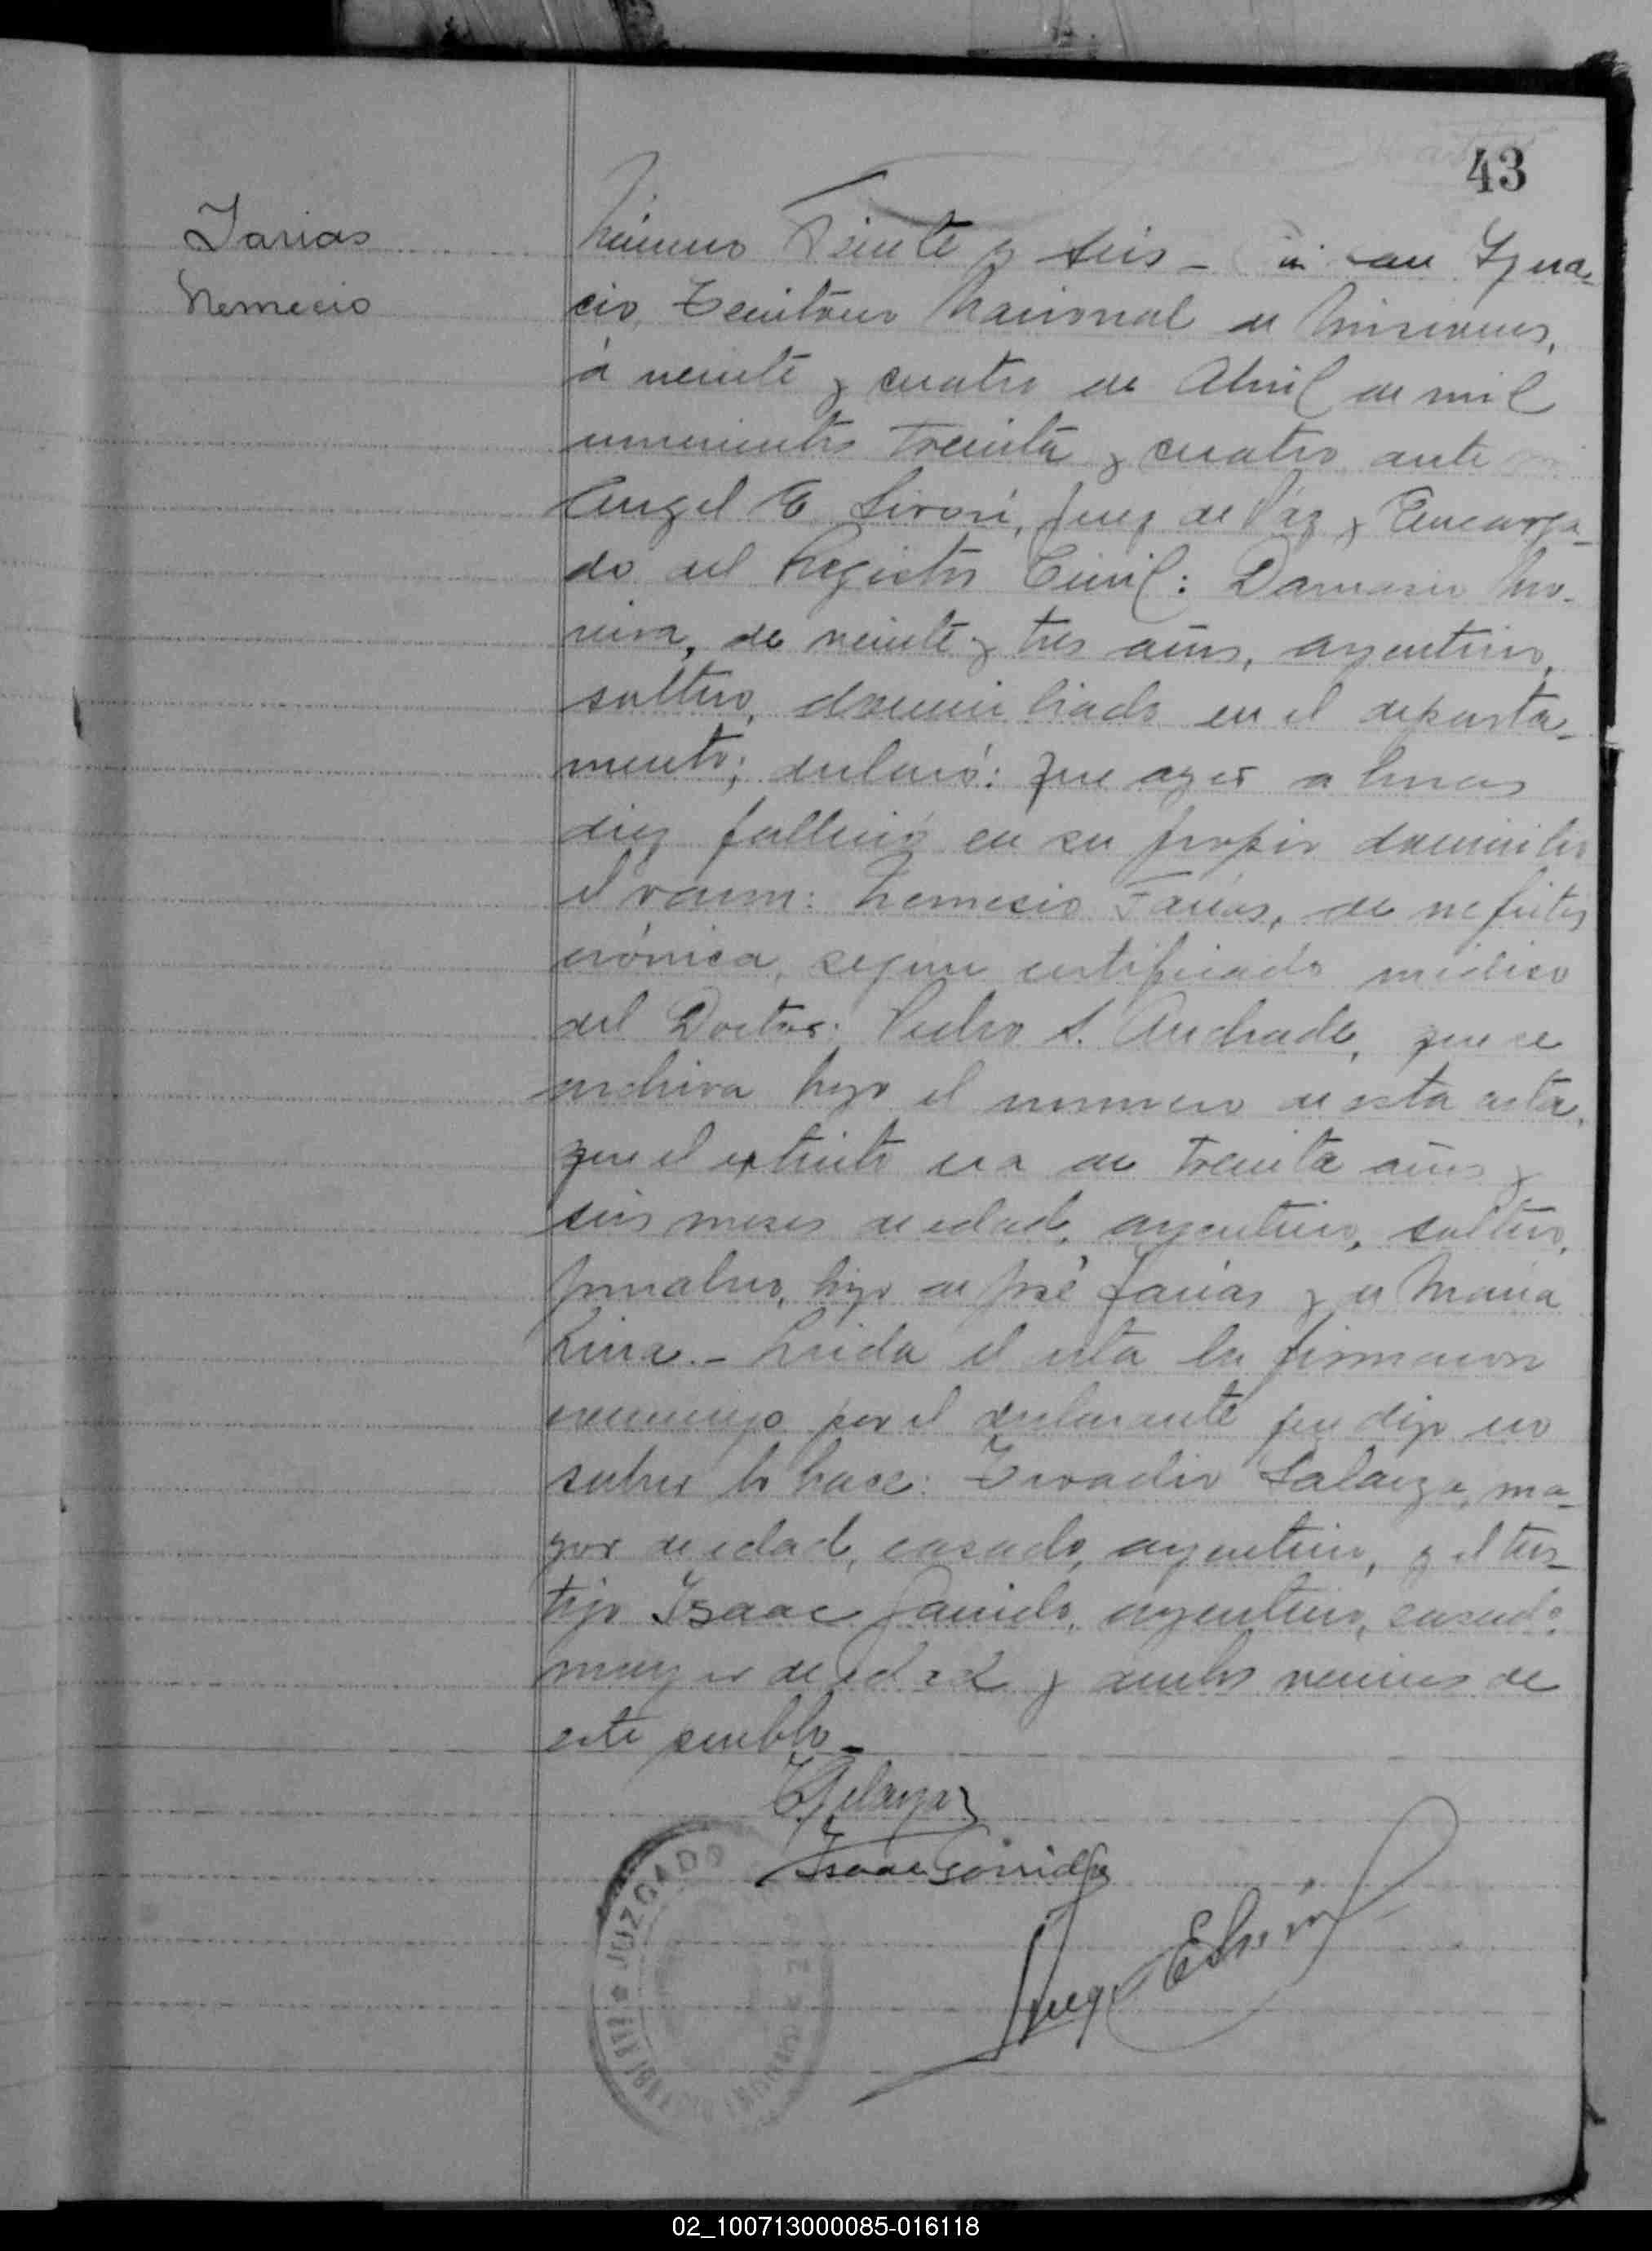 43
Farias
Nemecio
Número Veinte y seis - En San Igna-
cio, Territorio Nacional de Misiones,
á veinte y cuatro de Abril de mil
novecientos treinta y cuatro ante
Angel E. Sivori, Juez de Paz y Encarga-
do del Registro Civil: Damasio Mo-
reira, de veinte y tres años, argentino,
soltero, domiciliado en el departa-
mento; declaró: Que ayer a horas
diez falleció en su propio domicilio
el varon: Nemesio Farias, de nefritis
crónica, segun certificado médico
del Doctor: Pedro S. Andrade, que se
archiva bajo el numero de esta acta,
que el extinto era de treinta años y
seis meses de edad, argentino, soltero,
jornalero, hijo de José Farias y de Maria
Lina. - Leida el acta la firmaron
conmigo por el declarante que dijo no
saber lo hace: Galarza, ma-
yor de edad, casado, argentino, y el tes-
tigo Isaac Garrido, argentino, casado,
mayor de edad y ambos vecinos de
este pueblo -
Galarza
Isaac Garrido
JUZGADO
02_100713000085-016118